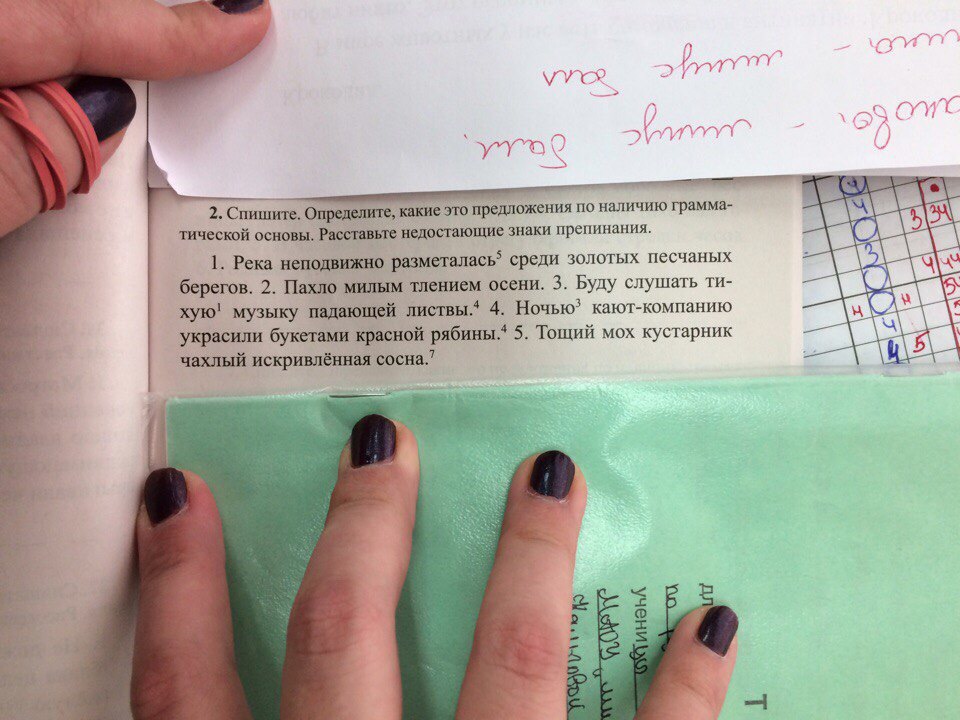 минус балл
минус балл.
2. Спишите. Определите, какие это предложения по наличию грамма-
тической основы. Расставьте недостающие знаки препинания.
1. Река неподвижно разметалась⁵ среди золотых песчаных
берегов. 2. Пахло милым тлением осени. 3. Буду слушать ти-
хую¹ музыку падающей листвы.⁴ 4. Ночью³ кают-компанию
украсили букетами красной рябины.⁴ 5. Тощий мох кустарник
чахлый искривлённая сосна.⁷
3 34
4 44
5
4
дл
по
ученицы
Т